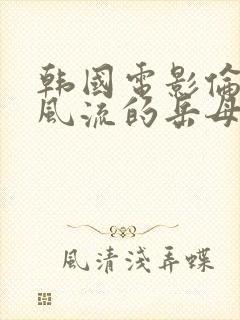 韩國電影倫
風流的岳母
風清淺弄蝶